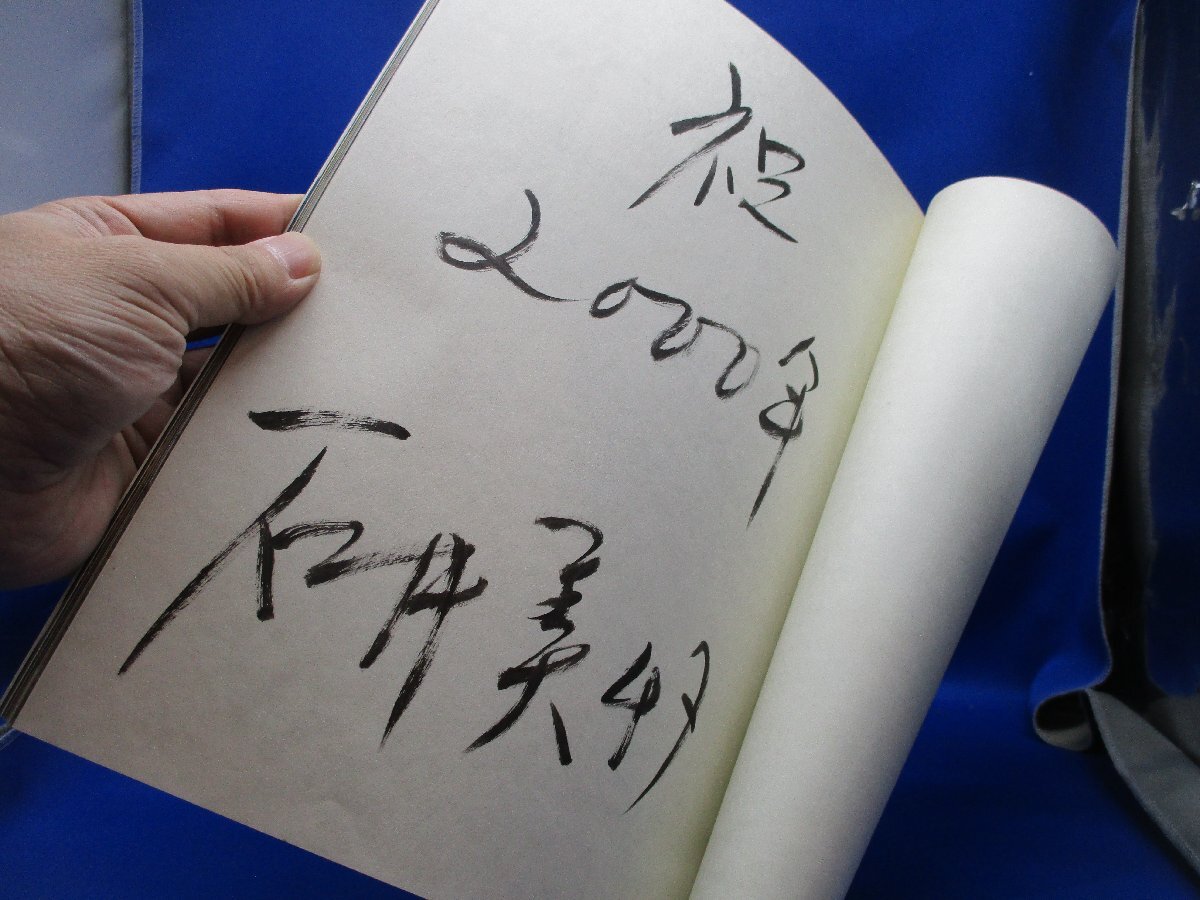 祝
2000年
石井美好